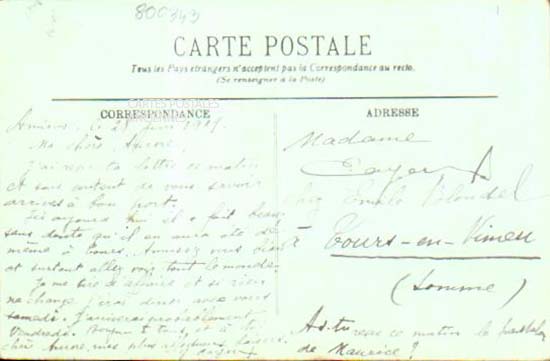 800343
CARTE POSTALE
Tous les Pays étrangers n'acceptent pas la Correspondance au recto.
(Se renseigner à la Poste)
CARTES POSTALES
CORRESPONDANCE
ADRESSE
Amiens, le 25 Juin
Ma chère Aurore,
J'ai reçu ta lettre ce matin
et suis content de vous savoir
arrivés à bon port.
Ici aujourd'hui il a fait beau
sans doute qu'il en aura été de
même à Tours. Amusez vous bien
et surtout allez voir tout le monde
et si rien
ne change j'irai diner avec vous
samedi. J'arriverai probablement
Vendredi. Bonjour à tous, et à toi
chère Aurore, mes plus baisers.
Madame
chez Emile
à
Tours-en-Vimeu
(Somme)
As-tu reçu ce matin le
de Maurice ?